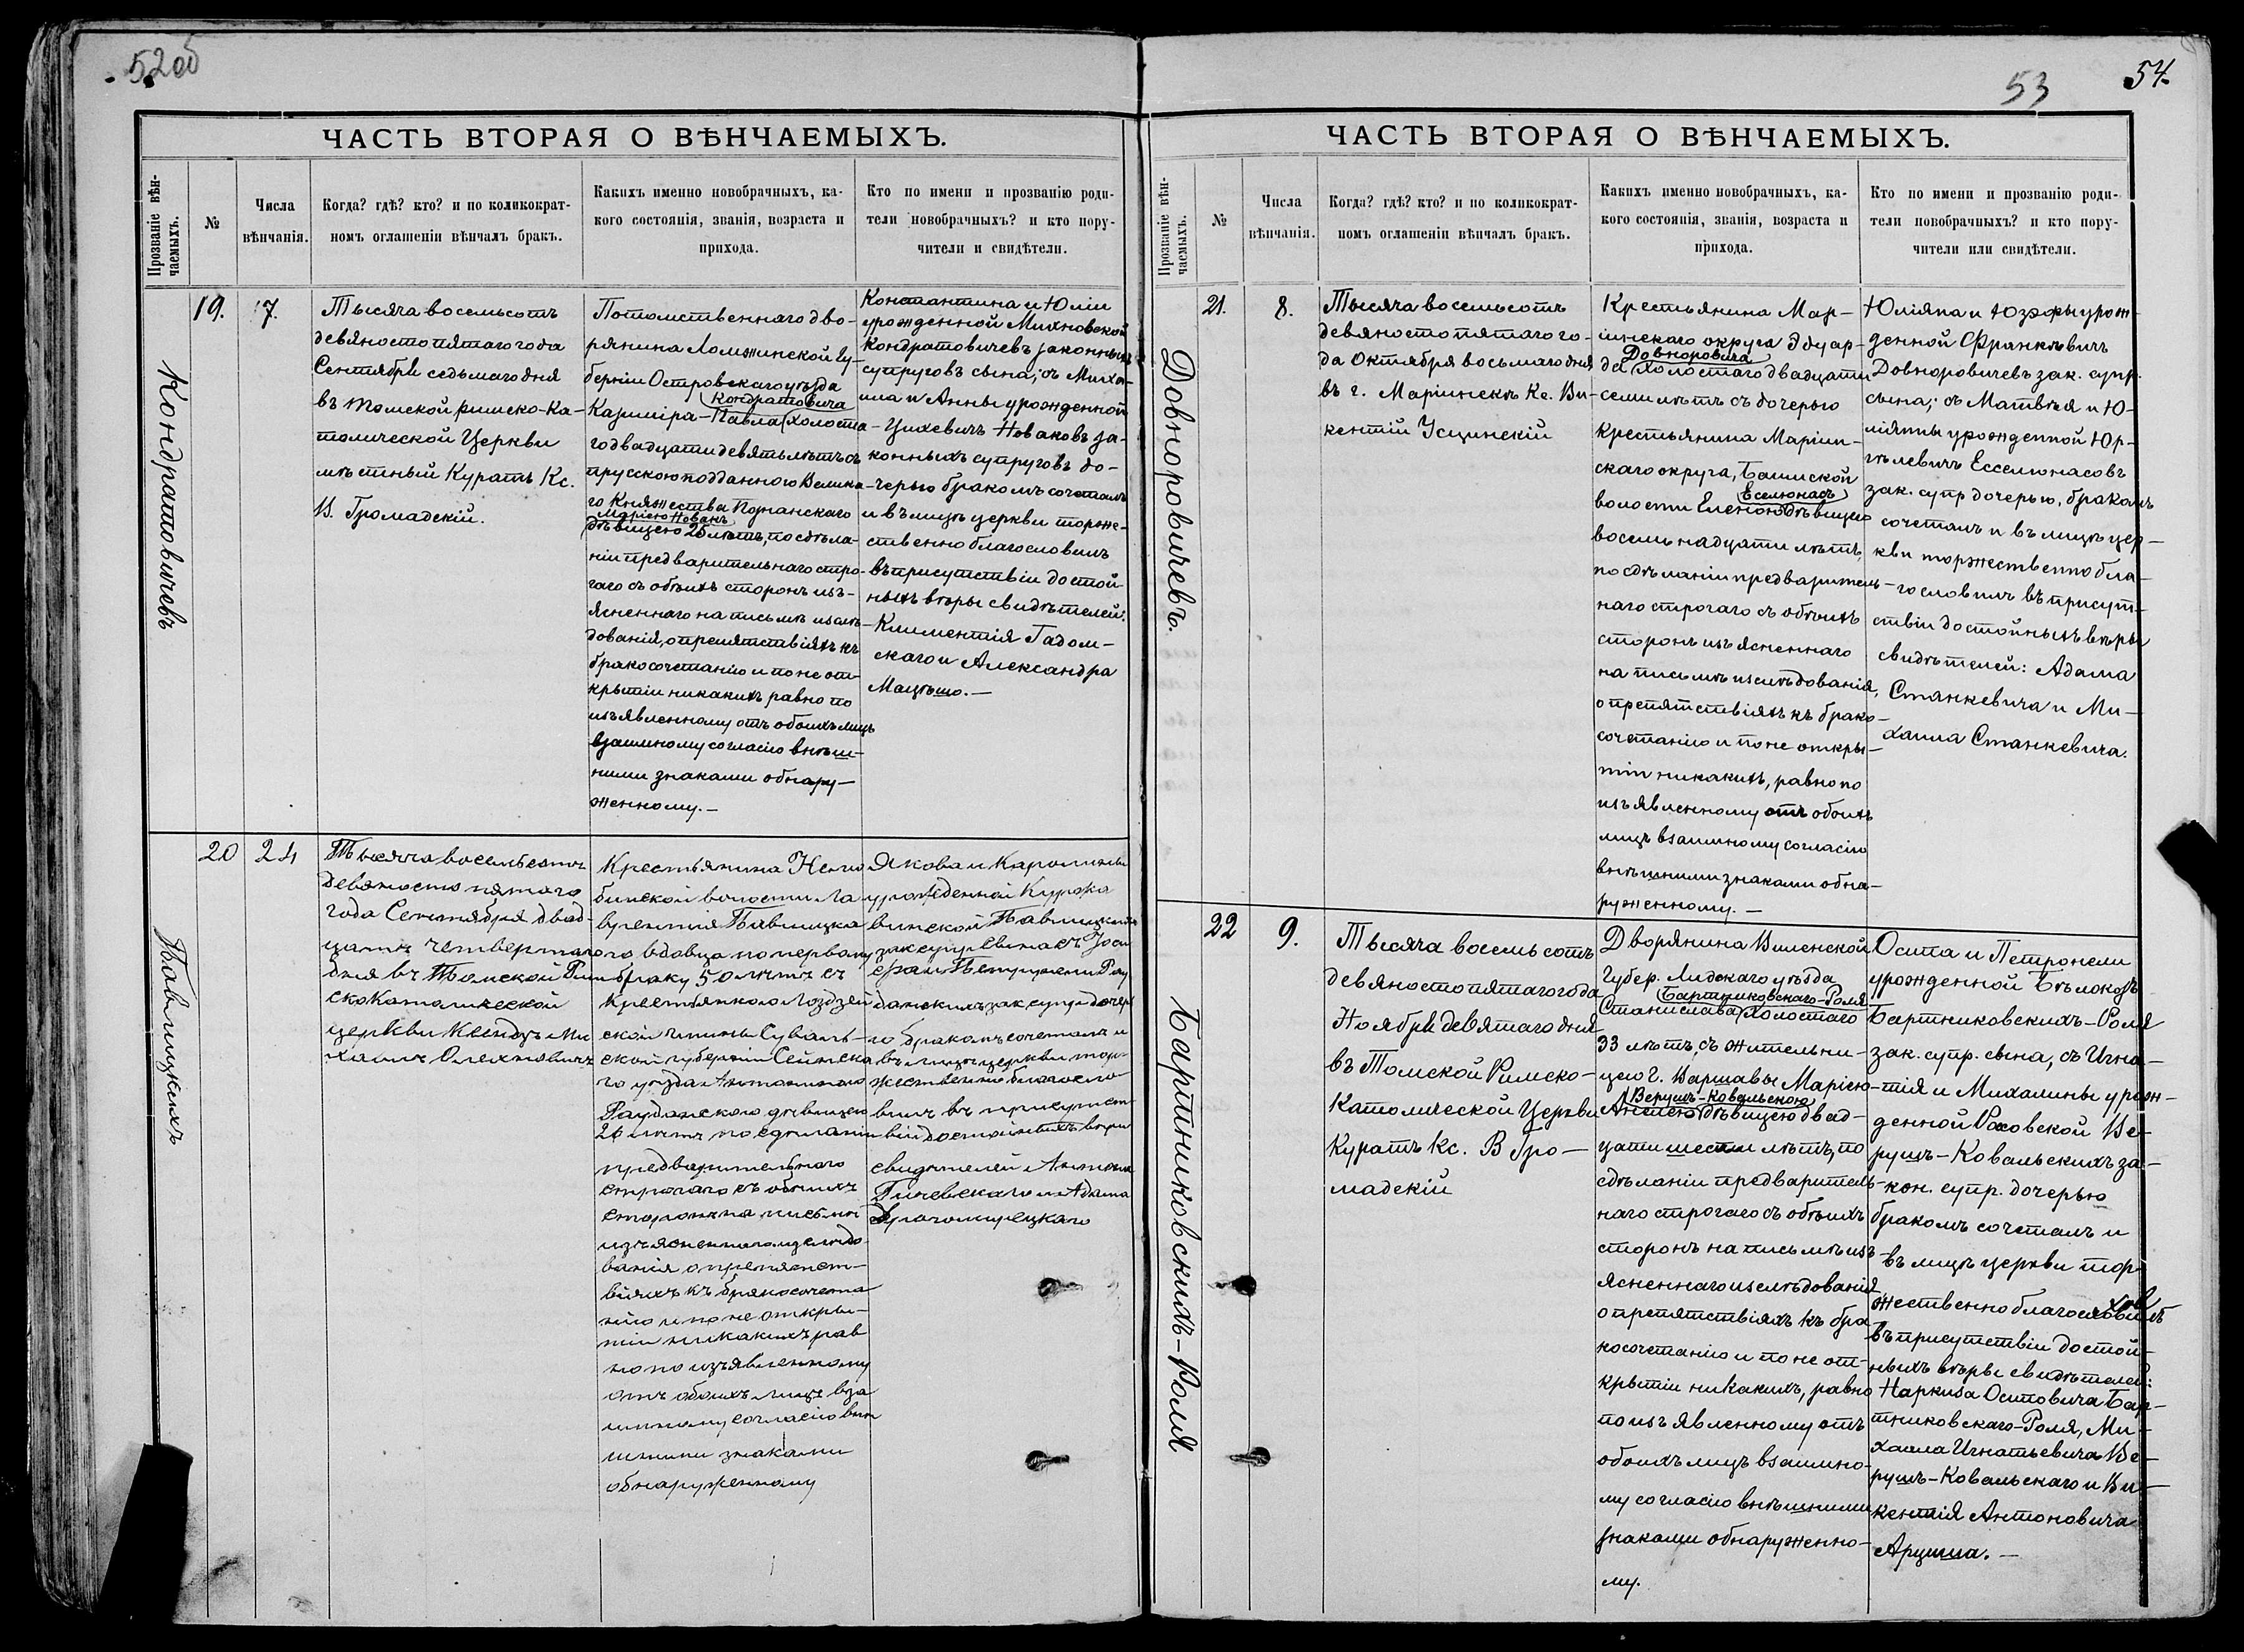 52об
ЧАСТЬ ВТОРАЯ О ВѢНЧАЕМЫХЪ.
Прозваніе вѣн-
чаемыхъ.
№
Числа
вѣнчанія.
Когда? гдѣ? кто? и по коликократ-
номъ оглашеніи вѣнчалъ бракъ.
Какихъ именно новобрачныхъ, ка-
кого состоянія, званія, возраста и
прихода.
Кто по имени и прозванію роди-
тели новобрачныхъ? и кто пору-
чители и свидѣтели.
Кондратовичевъ
19.
7.
Тысяча восемьсотъ
девяносто пятаго года
Сентября седьмаго дня
въ Томской римско-ка-
толической Церкви
мѣстный Куратъ Кс.
В. Громадскій.
Потомственнаго дво-
рянина Ломжинской гу-
берніи Островскаго уѣзда
Кондратовича
Казиміра-Павла холоста-
го двадцати девяти лѣтъ съ
прусскою подданного Велика-
го Княжества Познанскаго
Маріею Новакъ
дѣвицею 25 лѣтъ, по сдѣла-
ніи предварительнаго стро-
гаго съ обѣихъ сторонъ изъ-
ясненнаго на письмѣ изслѣ-
дованія, о препятствіяхъ къ
бракосочетанію и по не от-
крытіи никакихъ равно по
изъявленному отъ обоихъ лицъ
взаимному согласію внѣш-
ними знаками обнару-
женному.—
Константина и Юліи
урожденной Михновской
Кондратовичевъ законныхъ
супруговъ сына; съ Миха-
ила и Анны урожденной
Цихевичъ Новаковъ за-
конныхъ супруговъ до-
черью бракомъ сочеталъ
и въ лицѣ церкви торже-
ственно благословилъ
въ присутствіи достой-
ныхъ вѣры свидѣтелей:
Климентія Гадом-
скаго и Александра
Мацѣшо.—
Павлицкихъ
20
24
Тысяча восемьсотъ
девяносто пятаго
года Сентября двад-
цать четвертаго
дня въ Томской Рим
ско Католической
церкви Ксендзъ Ми
хаилъ Олехновичъ
Крестьянина Нелю
бинской волости Ла
врентія Павлицка
го вдовца по первому
браку 50 лѣтъ съ
крестьянкою Лоздзей
ской гмины Суваль-
ской губерніи Сейнска
го уѣзда Антониною
Рауданскою дѣвицею
26 лѣтъ по сдѣланіи
предварительнаго
строгаго съ обѣихъ
сторонъ на письмѣ
изъясненнаго изслѣдо
ванія о препятст-
віяхъ къ бракосочета
нію и по не откры-
тіи никакихъ рав
но по изъявленному
отъ обоихъ лицъ вза
имному согласію внѣ
шними знаками
обнаруженному
Якова и Каролины
урожденной Куржа
винской Павлицкихъ
зак супр сына съ Іоси
фа и Петронели Рау
данскихъ зак супр дочерь
ю бракомъ сочеталъ и
въ лицѣ церкви тор-
жественно благосло-
вилъ въ присутст-
віи достойныхъ вѣры
свидѣтелей Антона
Гичевскаго и Адама
53
54.
ЧАСТЬ ВТОРАЯ О ВѢНЧАЕМЫХЪ.
Прозваніе вѣн-
чаемыхъ.
№
Числа
вѣнчанія.
Когда? гдѣ? кто? и по коликократ-
номъ оглашеніи вѣнчалъ бракъ.
Какихъ именно новобрачныхъ, ка-
кого состоянія, званія, возраста и
прихода.
Кто по имени и прозванію роди-
тели новобрачныхъ? и кто пору-
чители или свидѣтели.
Довноровичевъ.
21.
8.
Тысяча восемьсотъ
девяносто пятаго го-
да Октября восьмаго дня
въ г. Маріинскѣ Кс. Ви-
кентій Усцинскій
Крестьянина Мар-
іинскаго округа Эдуар-
Довноровича
да холостаго двадцати
семи лѣтъ съ дочерью
крестьянина Маріин-
скаго округа, Баимской
Еселюнасъ
волости Еленою дѣвицею
восемьнадцати лѣтъ,
по сдѣланіи предваритель-
наго строгаго съ обѣихъ
сторонъ изъясненнаго
на письмѣ изслѣдованія,
о препятствіяхъ къ брако-
сочетанію и по не откры-
тіи никакихъ, равно по
изъявленному отъ обоихъ
лицъ взаимному согласію
внѣшними знаками обна-
руженному.—
Юліяна и Юзэфы урож-
денной Франкѣвичъ
Довноровичевъ зак. супр.
сына; съ Матвѣя и Ю-
ліянны урожденной Юр-
гѣлевичъ Есселюнасовъ
зак. супр дочерью, бракомъ
сочеталъ и въ лицѣ цер-
кви торжественно бла-
гословилъ въ присут-
ствіи достойныхъ вѣры
свидѣтелей: Адама
Станкевича и Ми-
хаила Станкевича.
Бартниковскихъ-Роля
22
9.
Тысяча восемьсотъ
девяносто пятаго года
Ноября девятаго дня
въ Томской Римско-
Католической Церкви
Куратъ Кс. В Гро-
мадскій
Дворянина Виленской
Губер. Лидскаго уѣзда
Бартниковскаго-Роля
Станислава холостаго
33 лѣтъ, съ жительни-
цею г. Варшавы Маріею-
Верушъ-Ковальскою
Анелею дѣвицею двад-
цати шести лѣтъ, по
сдѣланіи предваритель-
наго строгаго съ обѣихъ
сторонъ на письмѣ изъ-
ясненнаго изслѣдованія
о препятствіяхъ къ бра-
косочетанію и по не от-
крытіи никакихъ, равно
по изъявленному отъ
обоихъ лицъ взаимно-
му согласію внѣшними
знаками обнаруженно-
му.
Осипа и Петронели
урожденной Бѣлокозъ
Бартниковскихъ-Роля
зак. супр. сына, съ Игна-
тія и Михалины урож-
денной Раховской Ве-
рушъ-Ковальскихъ за-
кон. супр. дочерью
бракомъ сочеталъ и
въ лицѣ церкви тор-
жественно благословилъ
въ присутствіи достой-
ныхъ вѣры свидѣтелей:
Наркиза Осиповича Бар-
тниковскаго-Роля, Ми-
хаила Игнатьевича Ве-
рушъ-Ковальскаго и Ви-
кентія Антоновича
Арциша.—